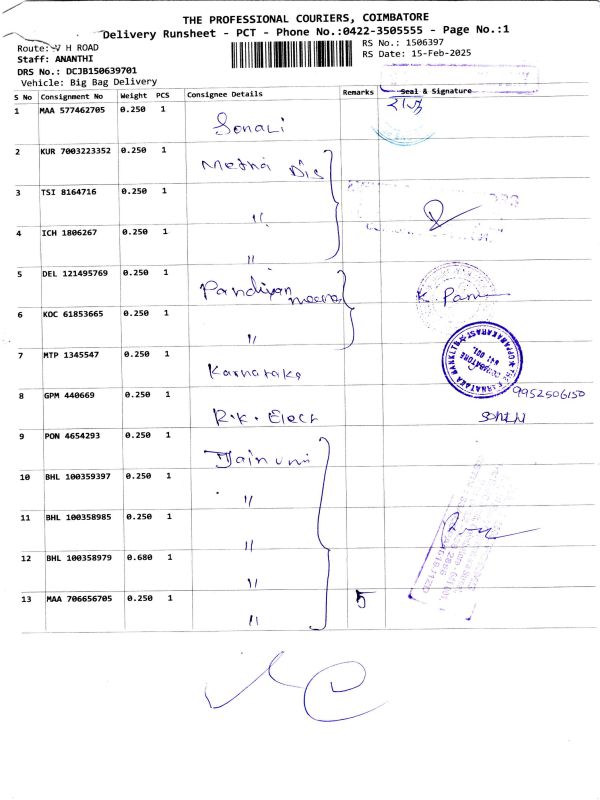 THE PROFESSIONAL COURIERS, COIMBATORE
Delivery Runsheet - PCT - Phone No.:0422-3505555 - Page No.:1
Route: V H ROAD
RS No.: 1506397
Staff: ANANTHI
RS Date: 15-Feb-2025
DRS No.: DCJB150639701
Vehicle: Big Bag Delivery
S No Consignment No Weight PCS Consignee Details Remarks Seal & Signature
1 MAA 577462705 0.250 1 Sonali
2 KUR 7003223352 0.250 1 Metha Dis
3 TSI 8164716 0.250 1 "
4 ICH 1806267 0.250 1 "
5 DEL 121495769 0.250 1 Pandiyan
6 KOC 61853665 0.250 1 "
7 MTP 1345547 0.250 1 Karnataka
8 GPM 440669 0.250 1 R.K. Elect 9952506150
9 PON 4654293 0.250 1
10 BHL 100359397 0.250 1 "
11 BHL 100358985 0.250 1 "
12 BHL 100358979 0.680 1 "
13 MAA 706656705 0.250 1 " 5